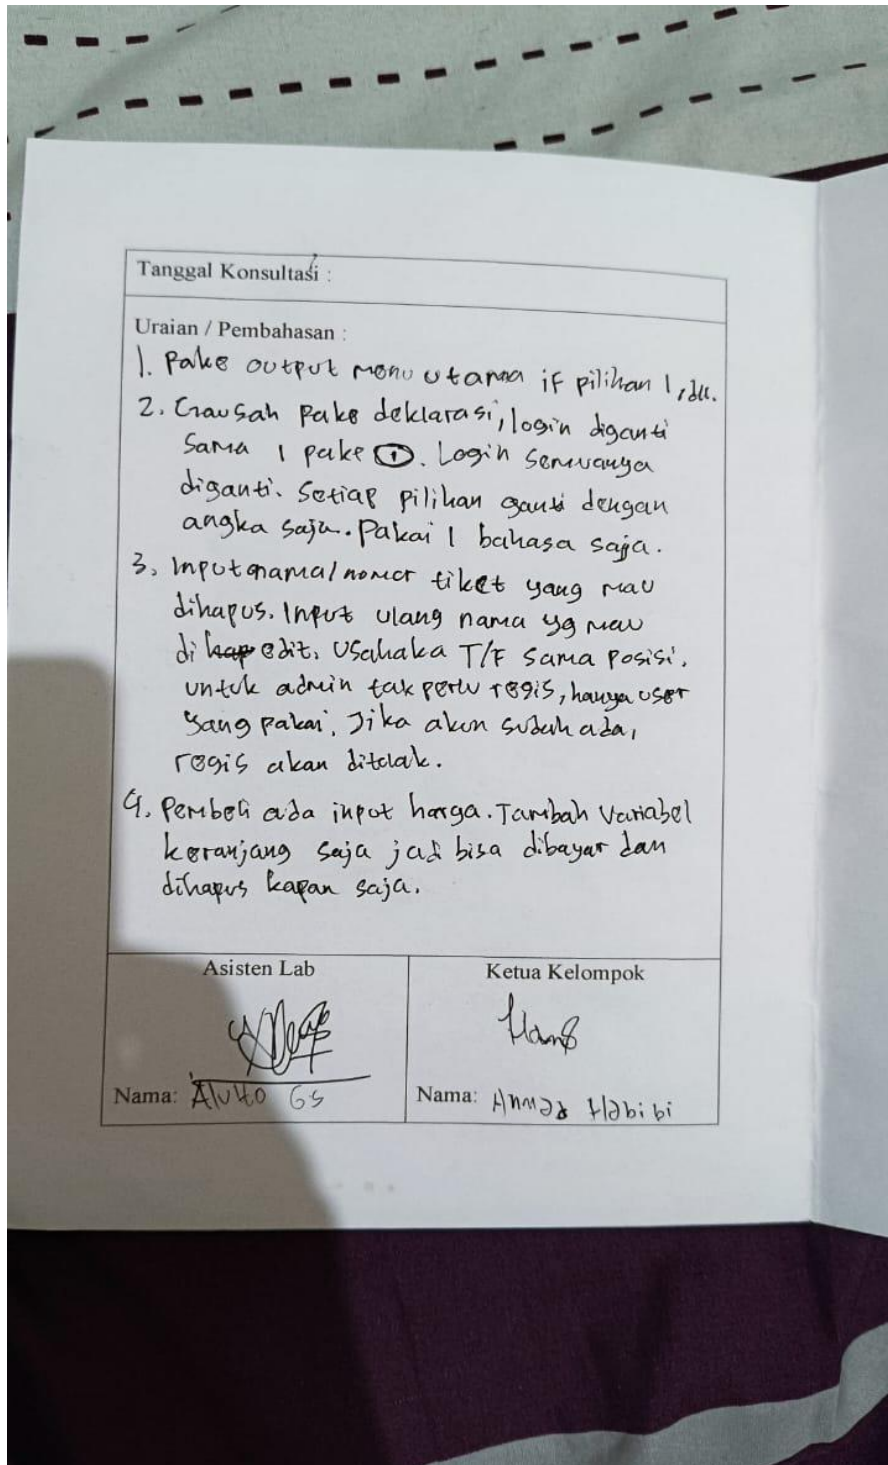 Tanggal Konsultasi :
Uraian / Pembahasan :
1. Pake output menu utama if pilihan 1, dll.
2. Gausah pake deklarasi, login diganti
sama 1 pake ①. Login semuanya
diganti. Setiap pilihan ganti dengan
angka saja. Pakai 1 bahasa saja.
3. Input nama/nomor tiket yang mau
dihapus. Input ulang nama yg mau
di hap edit. Usahaka T/F sama posisi.
untuk admin tak perlu regis, hanya user
yang pakai. Jika akun sudah ada,
regis akan ditolak.
4. Pembeli ada input harga. Tambah Variabel
keranjang saja jadi bisa dibayar dan
dihapus kapan saja.
Asisten Lab
Ketua Kelompok
Nama:
Nama: Ahmad Habibi